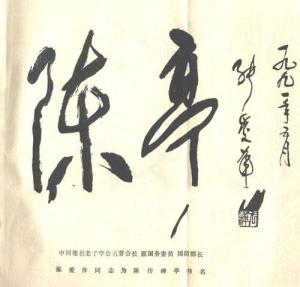 陈亭
一九九一年五月
张爱萍
中国鹿邑老子学会名誉会长 原国务委员 国防部长
张爱萍同志为陈抟碑亭书名